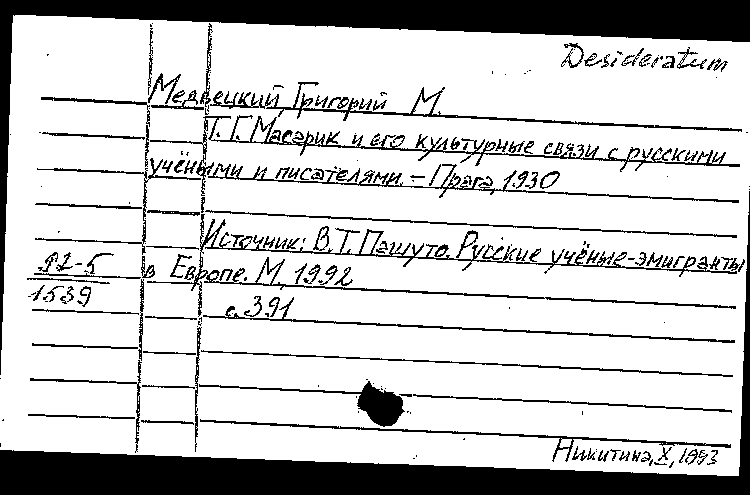 Desideratum
Медвецкий Григорий М.
Т. Г. Масарик и его культурные связи с русскими
учёными и писателями. – Прага, 1930
Источник: В. Т. Пашуто. Русские учёные-эмигранты
в Европе. М, 1992
с. 391
92-5
1539
Никитина, X, 1993